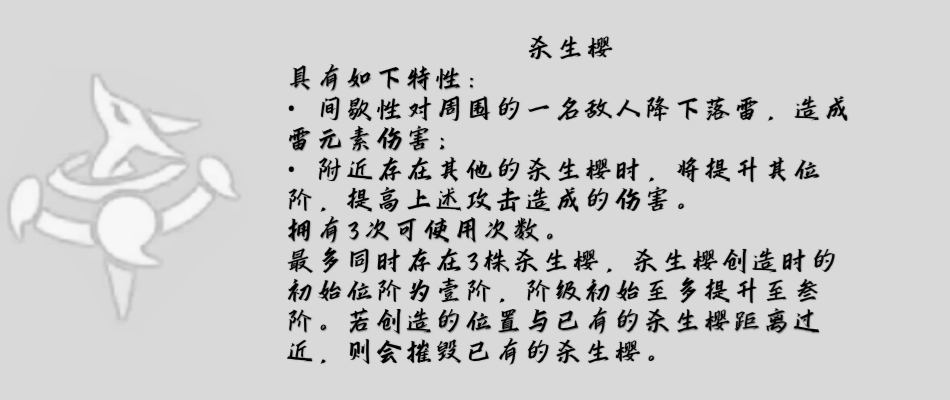 杀生樱
具有如下特性：
· 间歇性对周围的一名敌人降下落雷，造成
雷元素伤害；
· 附近存在其他的杀生樱时，将提升其位
阶，提高上述攻击造成的伤害。
拥有3次可使用次数。
最多同时存在3株杀生樱，杀生樱创造时的
初始位阶为壹阶，阶级初始至多提升至叁
阶。若创造的位置与已有的杀生樱距离过
近，则会摧毁已有的杀生樱。